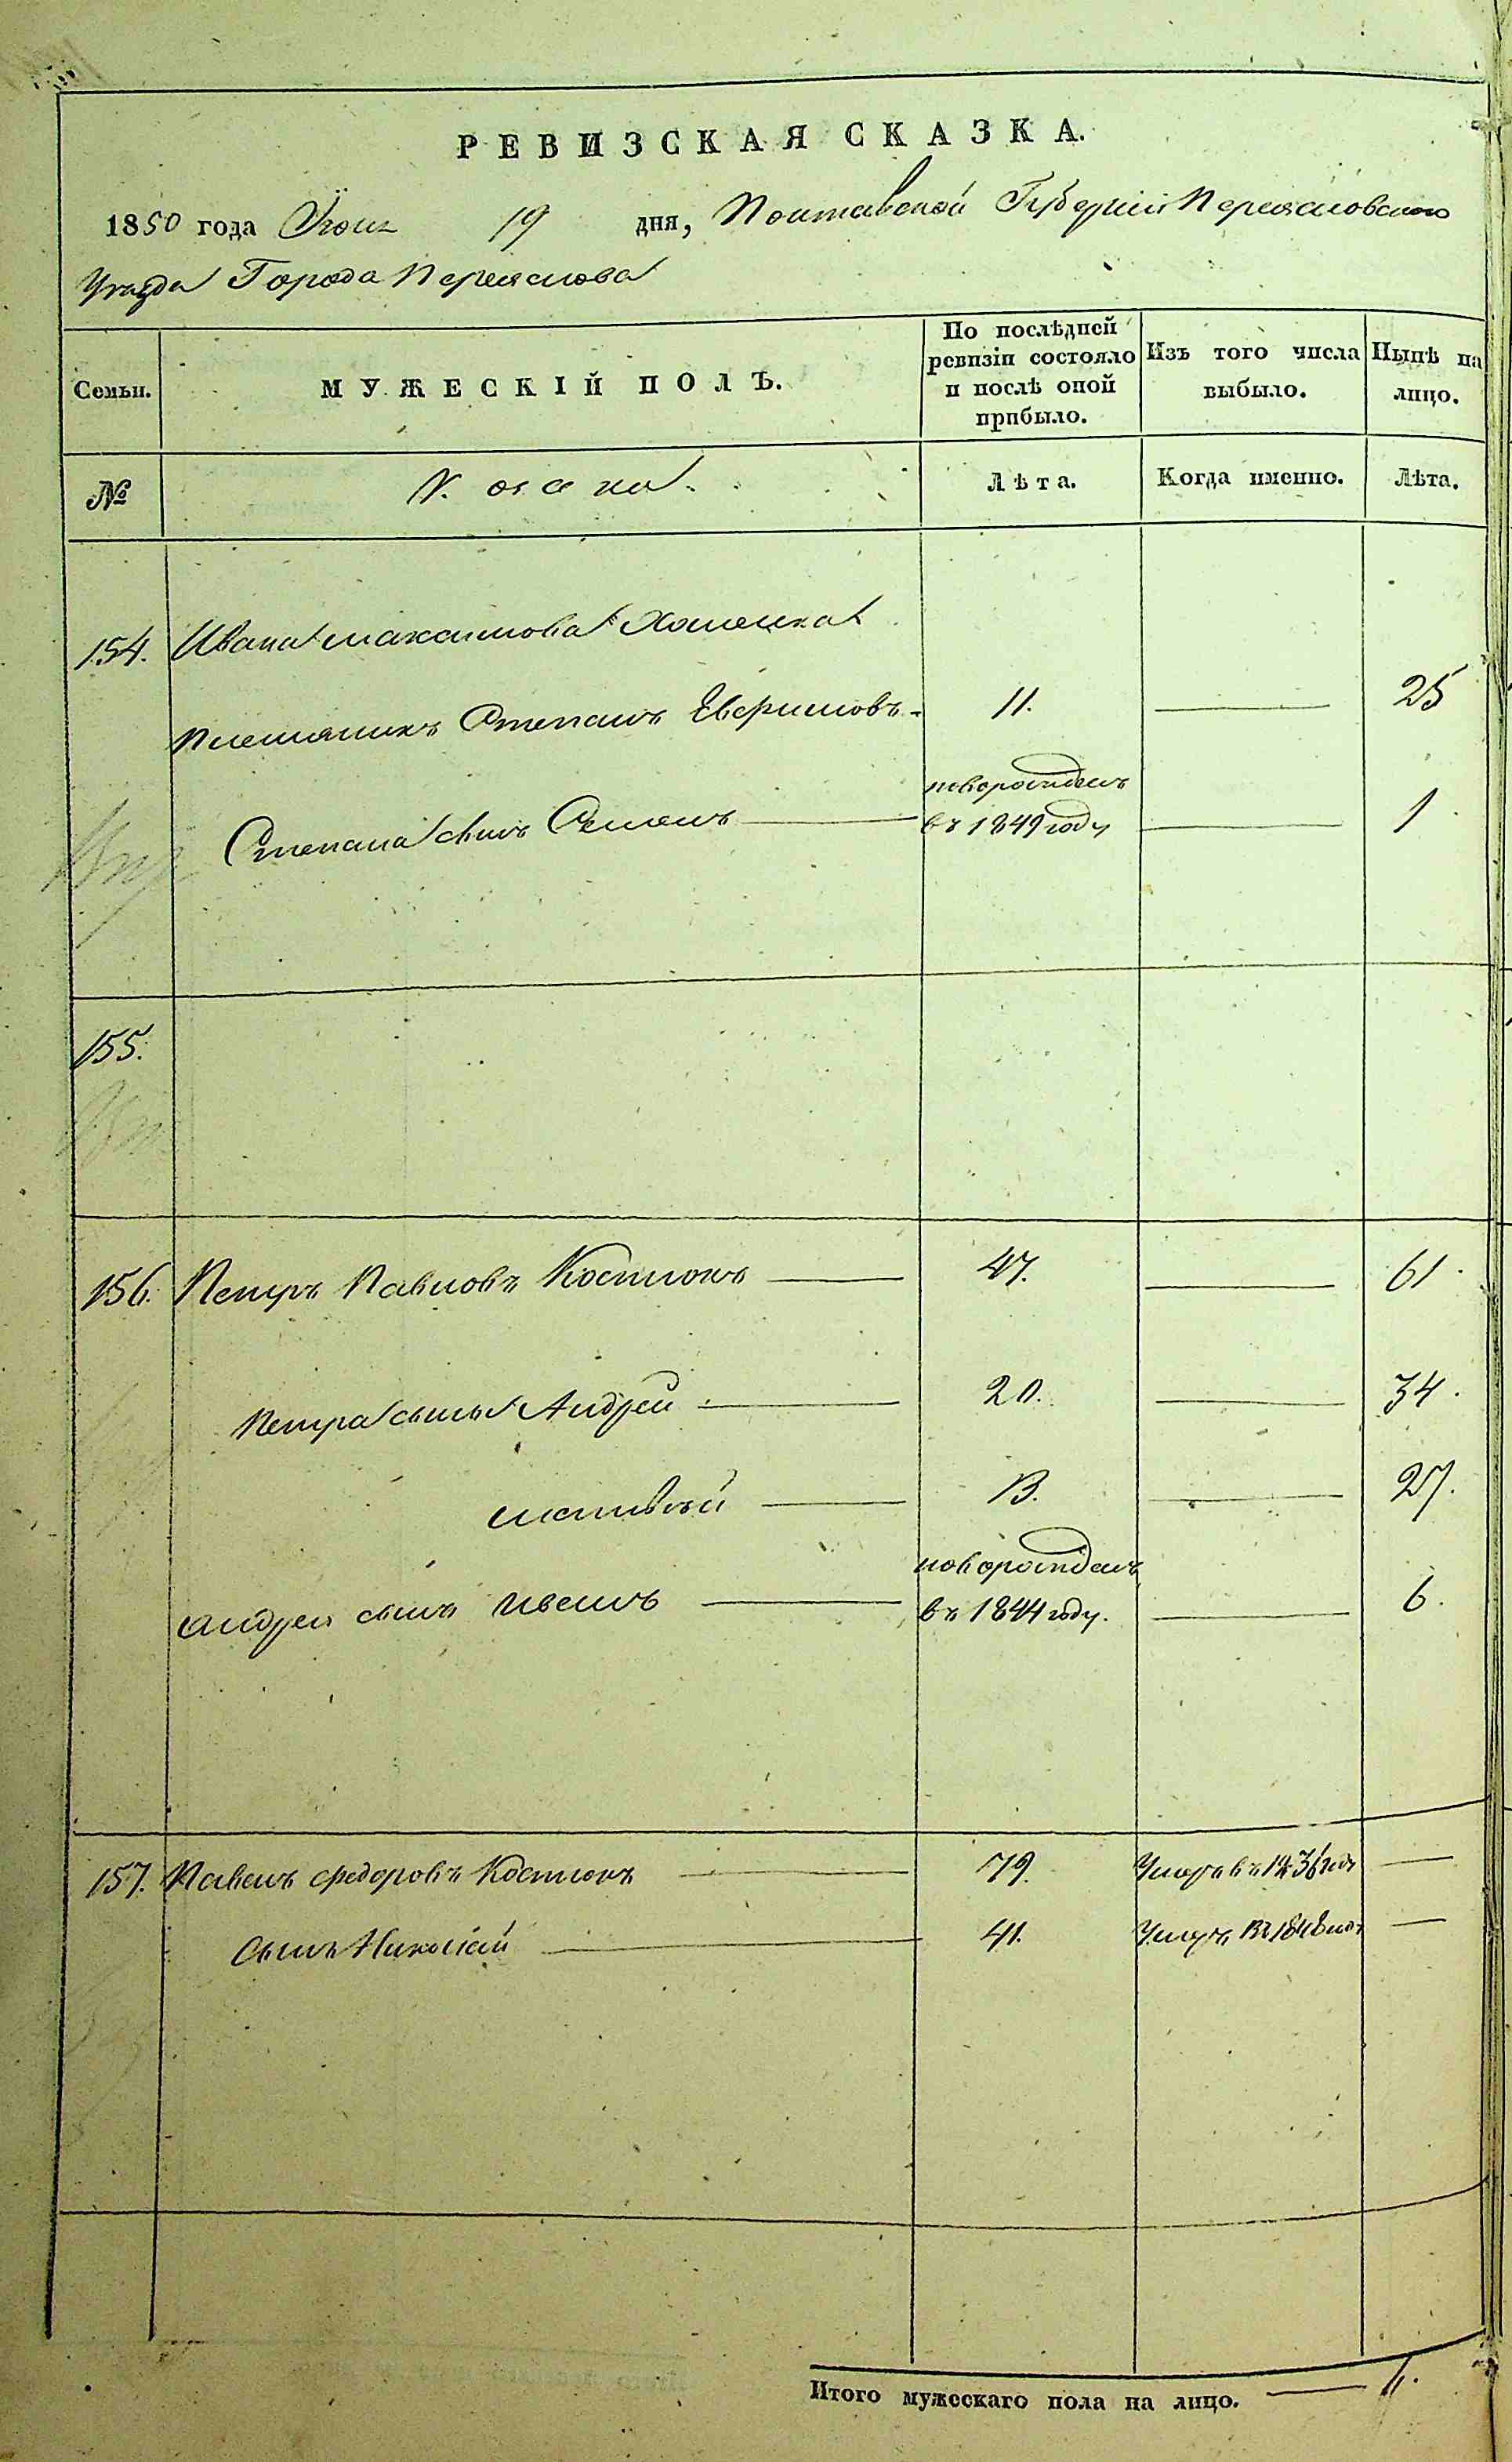 РЕВИЗСКАЯ СКАЗКА.
1850 года Июня 19 дня, Полтавской Губерніи Переяславского
Уезда Города Переяслова
Семьи. МУЖЕСКІЙ ПОЛЪ. По послѣдней ревизіи состояло и послѣ оной прибыло. Изъ того числа выбыло. Нынѣ на лицо.
№ Лѣта. Когда именно. Лѣта.
154. Ивана Максимова
племянникъ Степанъ Евфимовъ 11. 25
новорожденъ
Степана сынъ Семенъ въ 1849 году 1
155.
156. Петръ Павловъ Костюкъ 47. 61
Петра сынъ Андрей 20. 34
Матвѣй 13. 27.
новорожденъ
Андрея сынъ Иванъ въ 1844 году. 6.
157. Павелъ Федоровъ Костюкъ 79. Умеръ въ 1836 году
Сынъ Николай 41. Умеръ въ 1848 году
Итого мужескаго пола на лицо.